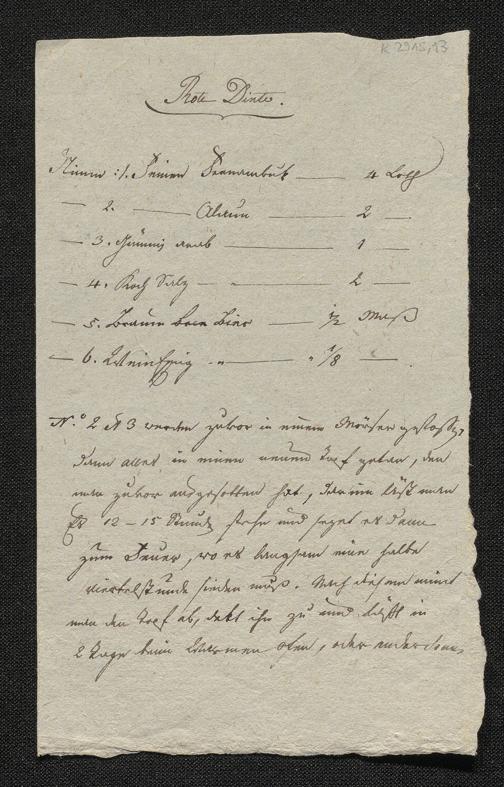 K 2915,13
Rote Dinte.
Nimm :1. Feinen Fernambuk — 4 Loth
— 2. — Alaun — 2 —
— 3. Gummi arab — 1 —
— 4. Koch Salz — " — 2 —
— 5. Braun Bier — 1/2 Maß
— 6. Weinessig " — " 1/8 " —
N.º 2 & 3 werden zuvor in einem Mörser gestoßen,
dann alles in einen neuen Topf getan, den
man zuvor ausgesotten hat, darinn läßt man
Es 12 – 15 Stund stehn und sezet es dann
zum Feuer, wo es langsam eine halbe
viertelstunde sieden muß. Nach disem nimt
man den Topf ab, dekt ihn zu und läßt in
2 Tage beim Warmen ofen, oder